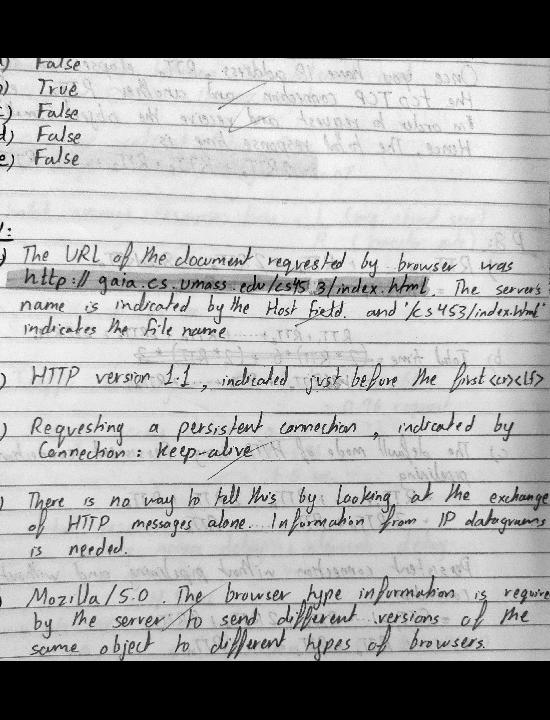 ) False
) True
c) False
d) False
e) False
:
) The URL of the document requested by browser was
http://gaia.cs.umass.edu/cs453/index.html. The server's
name is indicated by the Host field. and '/cs453/index.html'
indicates the file name
) HTTP version 1.1, indicated just before the first <cr><lf>
) Requesting a persistent connection, indicated by
Connection: Keep-alive
) There is no way to tell this by looking at the exchange
of HTTP messages alone. Information from IP datagrams
is needed.
) Mozilla/5.0. The browser type information is require
by the server to send different versions of the
same object to different types of browsers.